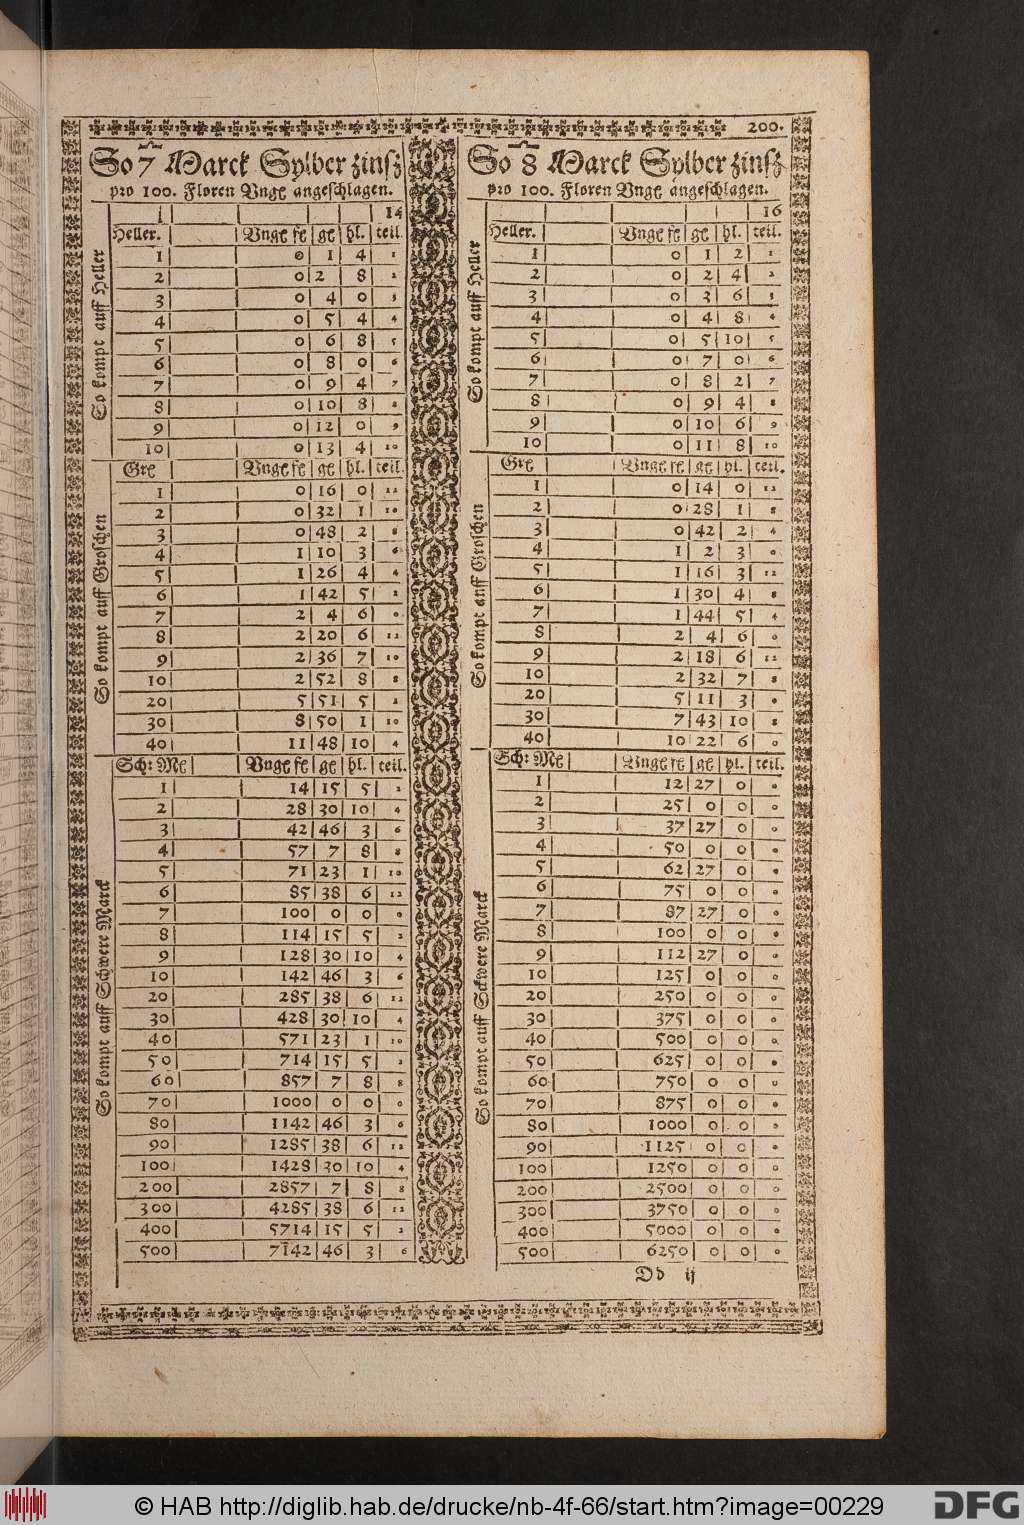 200.
So 7 Marck Sylber zinsz
pro 100. Floren Vngę angeschlagen.
14
Heller. Vngę fę gę hl. teil.
So kompt auff Heller
1 0 1 4 1
2 0 2 8 2
3 0 4 0 3
4 0 5 4 4
5 0 6 8 5
6 0 8 0 6
7 0 9 4 7
8 0 10 8 8
9 0 12 0 9
10 0 13 4 10
Grę Vngę fę gę hl. teil.
So kompt auff Groschen
1 0 16 0 12
2 0 32 1 10
3 0 48 2 8
4 1 10 3 6
5 1 26 4 4
6 1 42 5 2
7 2 4 6 0
8 2 20 6 12
9 2 36 7 10
10 2 52 8 8
20 5 51 5 2
30 8 50 1 10
40 11 48 10 4
Sch: Mę Vngę fę gę hl. teil.
So kompt auff Schwere Marck
1 14 15 5 2
2 28 30 10 4
3 42 46 3 6
4 57 7 8 8
5 71 23 1 10
6 85 38 6 12
7 100 0 0 0
8 114 15 5 2
9 128 30 10 4
10 142 46 3 6
20 285 38 6 12
30 428 30 10 4
40 571 23 1 10
50 714 15 5 2
60 857 7 8 8
70 1000 0 0 0
80 1142 46 3 6
90 1285 38 6 12
100 1428 30 10 4
200 2857 7 8 8
300 4285 38 6 12
400 5714 15 5 2
500 7142 46 3 6
So 8 Marck Sylber zinsz
pro 100. Floren Vngę angeschlagen.
16
Heller. Vngę fę gę hl. teil.
So kompt auff Heller
1 0 1 2 1
2 0 2 4 2
3 0 3 6 3
4 0 4 8 4
5 0 5 10 5
6 0 7 0 6
7 0 8 2 7
8 0 9 4 8
9 0 10 6 9
10 0 11 8 10
Grę Vngę fę gę hl. teil.
So kompt auff Groschen
1 0 14 0 12
2 0 28 1 8
3 0 42 2 4
4 1 2 3 0
5 1 16 3 12
6 1 30 4 8
7 1 44 5 4
8 2 4 6 0
9 2 18 6 12
10 2 32 7 8
20 5 11 3 0
30 7 43 10 8
40 10 22 6 0
Sch: Mę Vngę fę gę hl. teil.
So kompt auff Schwere Marck
1 12 27 0 0
2 25 0 0 0
3 37 27 0 0
4 50 0 0 0
5 62 27 0 0
6 75 0 0 0
7 87 27 0 0
8 100 0 0 0
9 112 27 0 0
10 125 0 0 0
20 250 0 0 0
30 375 0 0 0
40 500 0 0 0
50 625 0 0 0
60 750 0 0 0
70 875 0 0 0
80 1000 0 0 0
90 1125 0 0 0
100 1250 0 0 0
200 2500 0 0 0
300 3750 0 0 0
400 5000 0 0 0
500 6250 0 0 0
Dd ij
© HAB http://diglib.hab.de/drucke/nb-4f-66/start.htm?image=00229
DFG